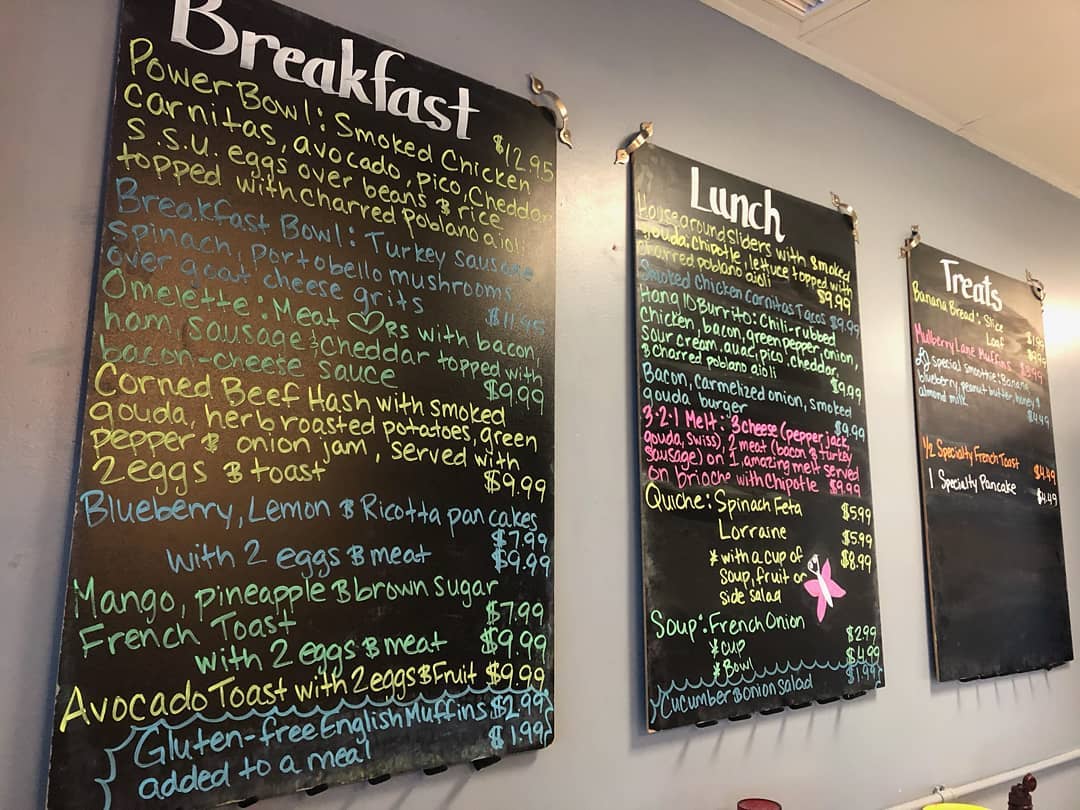 Breakfast
Power Bowl: Smoked Chicken $12.95
carnitas, avocado, pico, Cheddar
s.s.u. eggs over beans & rice
topped with charred Poblano aioli
Breakfast Bowl: Turkey sausage
spinach, portobello mushrooms,
over goat cheese grits $11.95
Omelette: Meat ♡RS with bacon,
ham, sausage & cheddar topped with
bacon-cheese sauce $9.99
Corned Beef Hash with smoked
gouda, herb roasted potatoes, green
pepper & onion jam, served with
2 eggs & toast $9.99
Blueberry, Lemon & Ricotta pancakes
$7.99
with 2 eggs & meat $9.99
Mango, pineapple & brown sugar
French Toast $7.99
with 2 eggs & meat $9.99
Avocado Toast with 2 eggs & Fruit $9.99
Gluten-free English Muffins $2.99
added to a meal $1.99
Lunch
Housearound Sliders with smoked
gouda, chipotle, lettuce topped with
charred poblano aioli $9.99
Smoked Chicken Carnitas Tacos $9.99
Burrito: Chili-rubbed
chicken, bacon, green pepper, onion,
sour cream, guac, pico, cheddar,
& charred poblano aioli $9.99
Bacon, carmelized onion, smoked
gouda burger $9.99
3-2-1 Melt: 3 cheese (pepper jack,
gouda, Swiss), 2 meat (bacon & turkey
sausage) on 1, amazing melt served
on Brioche with Chipotle $9.99
Quiche: Spinach Feta $5.99
Lorraine $5.99
* with a cup of $8.99
soup, fruit or
side salad
Soup: French Onion
* cup $2.99
* Bowl $4.99
Cucumber & onion salad $1.99
Treats
Banana Bread: Slice
Loaf
Mulberry Lane Muffins
special smoothie: Banana
blueberry, peanut butter, honey &
almond milk $4.49
1/2 Specialty French Toast $4.99
1 Specialty Pancake $4.49